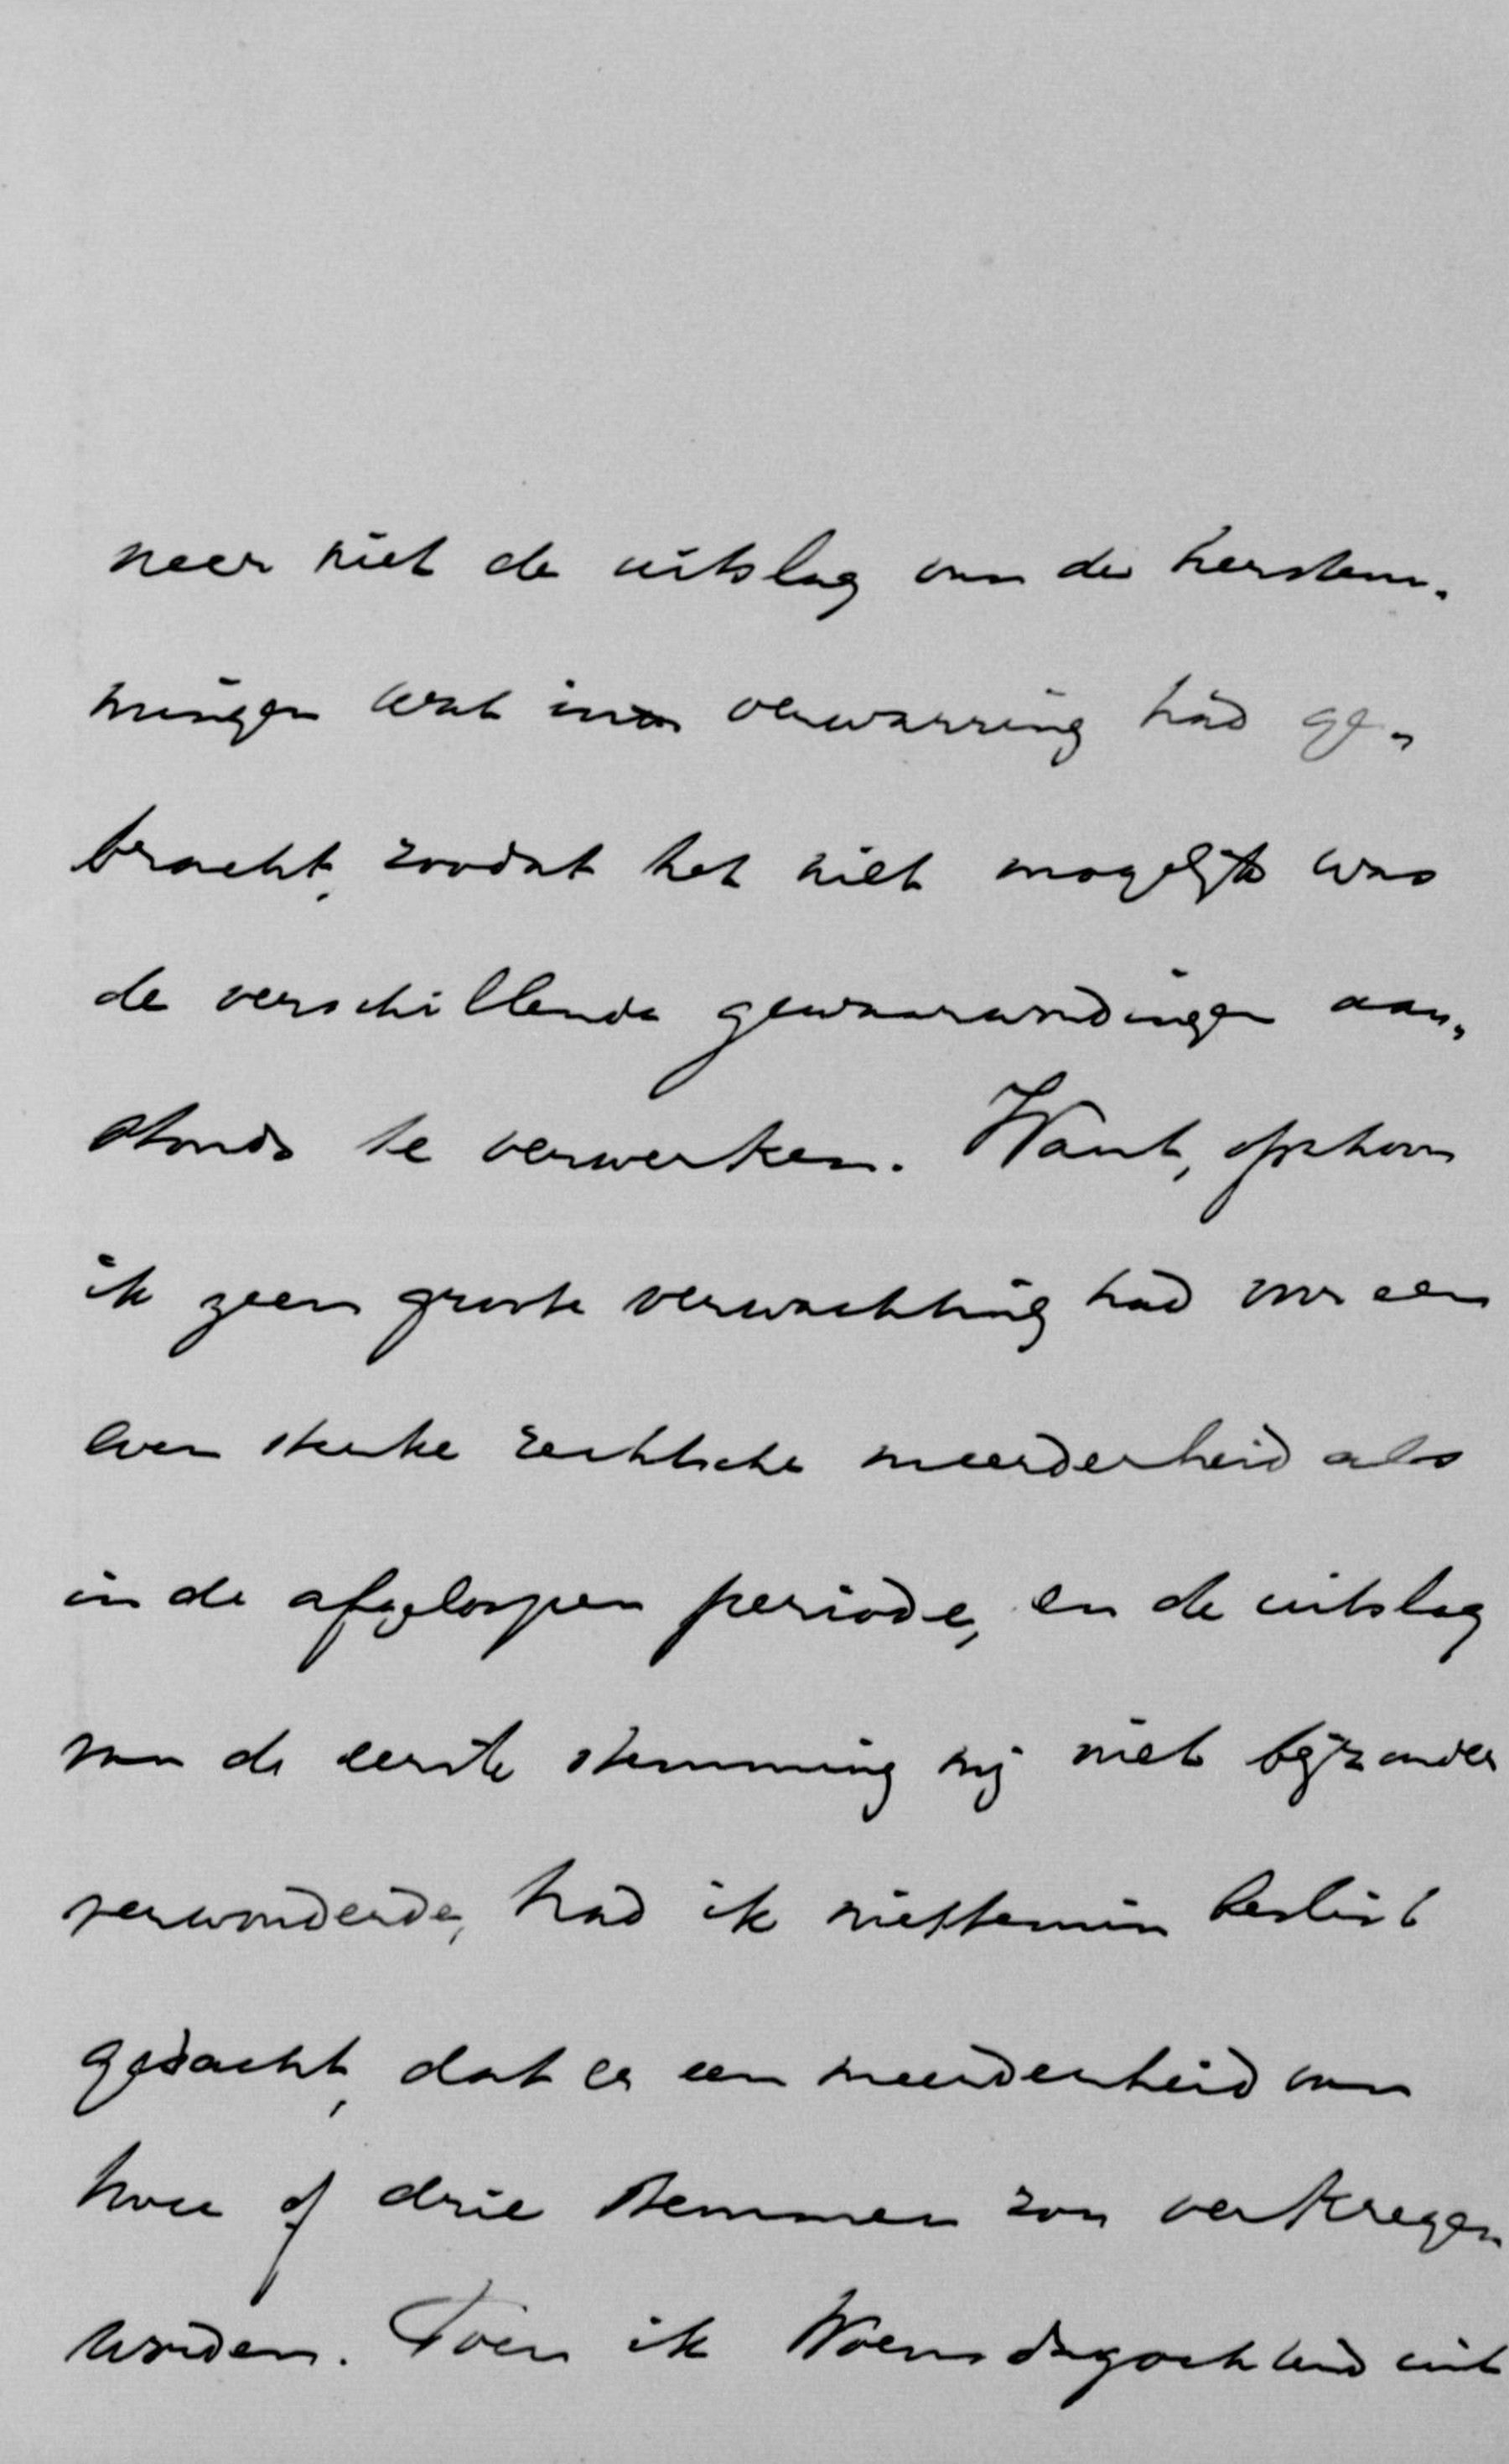 neer niet de uitslag van de herstem-
mingen wat in verwarring had ge-
bracht, zoodat het niet mogelijk was
de verschillende gewaarwordingen aan-
stonds te verwerken. Want, ofschoon
ik geen groote verwachting had van een
even sterke rechtsche meerderheid als
in de afgeloopen periode, en de uitslag
van de eerste stemming mij niet bijzonder
verwonderde, had ik niettemin beslist
gedacht, dat er een meerderheid van
twee of drie stemmen zou verkregen
worden. Toen ik Woensdagochtend uit